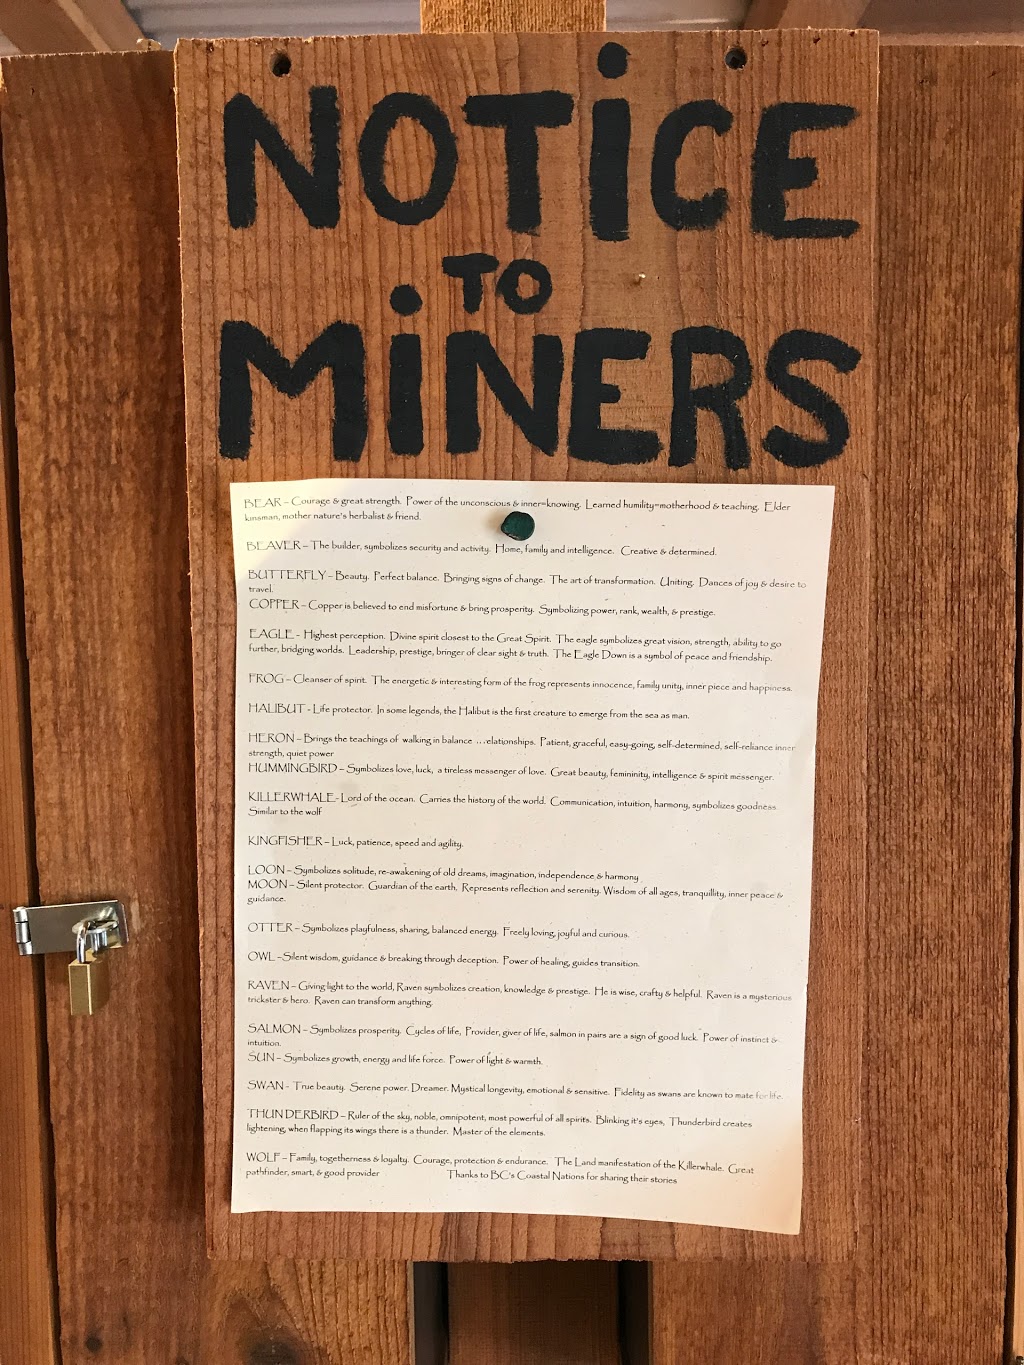 NOTiCE
TO
MiNERS
BEAR – Courage & great strength. Power of the unconscious & inner=knowing. Learned humility=motherhood & teaching. Elder
kinsman, mother nature's herbalist & friend.
BEAVER – The builder, symbolizes security and activity. Home, family and intelligence. Creative & determined.
BUTTERFLY – Beauty. Perfect balance. Bringing signs of change. The art of transformation. Uniting. Dances of joy & desire to
travel.
COPPER – Copper is believed to end misfortune & bring prosperity. Symbolizing power, rank, wealth, & prestige.
EAGLE – Highest perception. Divine spirit closest to the Great Spirit. The eagle symbolizes great vision, strength, ability to go
further, bridging worlds. Leadership, prestige, bringer of clear sight & truth. The Eagle Down is a symbol of peace and friendship.
FROG – Cleanser of spirit. The energetic & interesting form of the frog represents innocence, family unity, inner piece and happiness.
HALIBUT - Life protector. In some legends, the Halibut is the first creature to emerge from the sea as man.
HERON – Brings the teachings of walking in balance ...relationships. Patient, graceful, easy-going, self-determined, self-reliance inner
strength, quiet power
HUMMINGBIRD – Symbolizes love, luck, a tireless messenger of love. Great beauty, femininity, intelligence & spirit messenger.
KILLERWHALE- Lord of the ocean. Carries the history of the world. Communication, intuition, harmony, symbolizes goodness.
Similar to the wolf
KINGFISHER – Luck, patience, speed and agility.
LOON – Symbolizes solitude, re-awakening of old dreams, imagination, independence & harmony
MOON – Silent protector. Guardian of the earth, Represents reflection and serenity. Wisdom of all ages, tranquillity, inner peace &
guidance.
OTTER – Symbolizes playfulness, sharing, balanced energy. Freely loving, joyful and curious.
OWL –Silent wisdom, guidance & breaking through deception. Power of healing, guides transition.
RAVEN – Giving light to the world, Raven symbolizes creation, knowledge & prestige. He is wise, crafty & helpful. Raven is a mysterious
trickster & hero. Raven can transform anything.
SALMON – Symbolizes prosperity. Cycles of life, Provider, giver of life, salmon in pairs are a sign of good luck. Power of instinct &
intuition.
SUN – Symbolizes growth, energy and life force. Power of light & warmth.
SWAN - True beauty. Serene power. Dreamer. Mystical longevity, emotional & sensitive. Fidelity as swans are known to mate for life.
THUNDERBIRD – Ruler of the sky, noble, omnipotent, most powerful of all spirits. Blinking it's eyes, Thunderbird creates
lightening, when flapping its wings there is a thunder. Master of the elements.
WOLF – Family, togetherness & loyalty. Courage, protection & endurance. The Land manifestation of the Killerwhale. Great
pathfinder, smart, & good provider Thanks to BC's Coastal Nations for sharing their stories